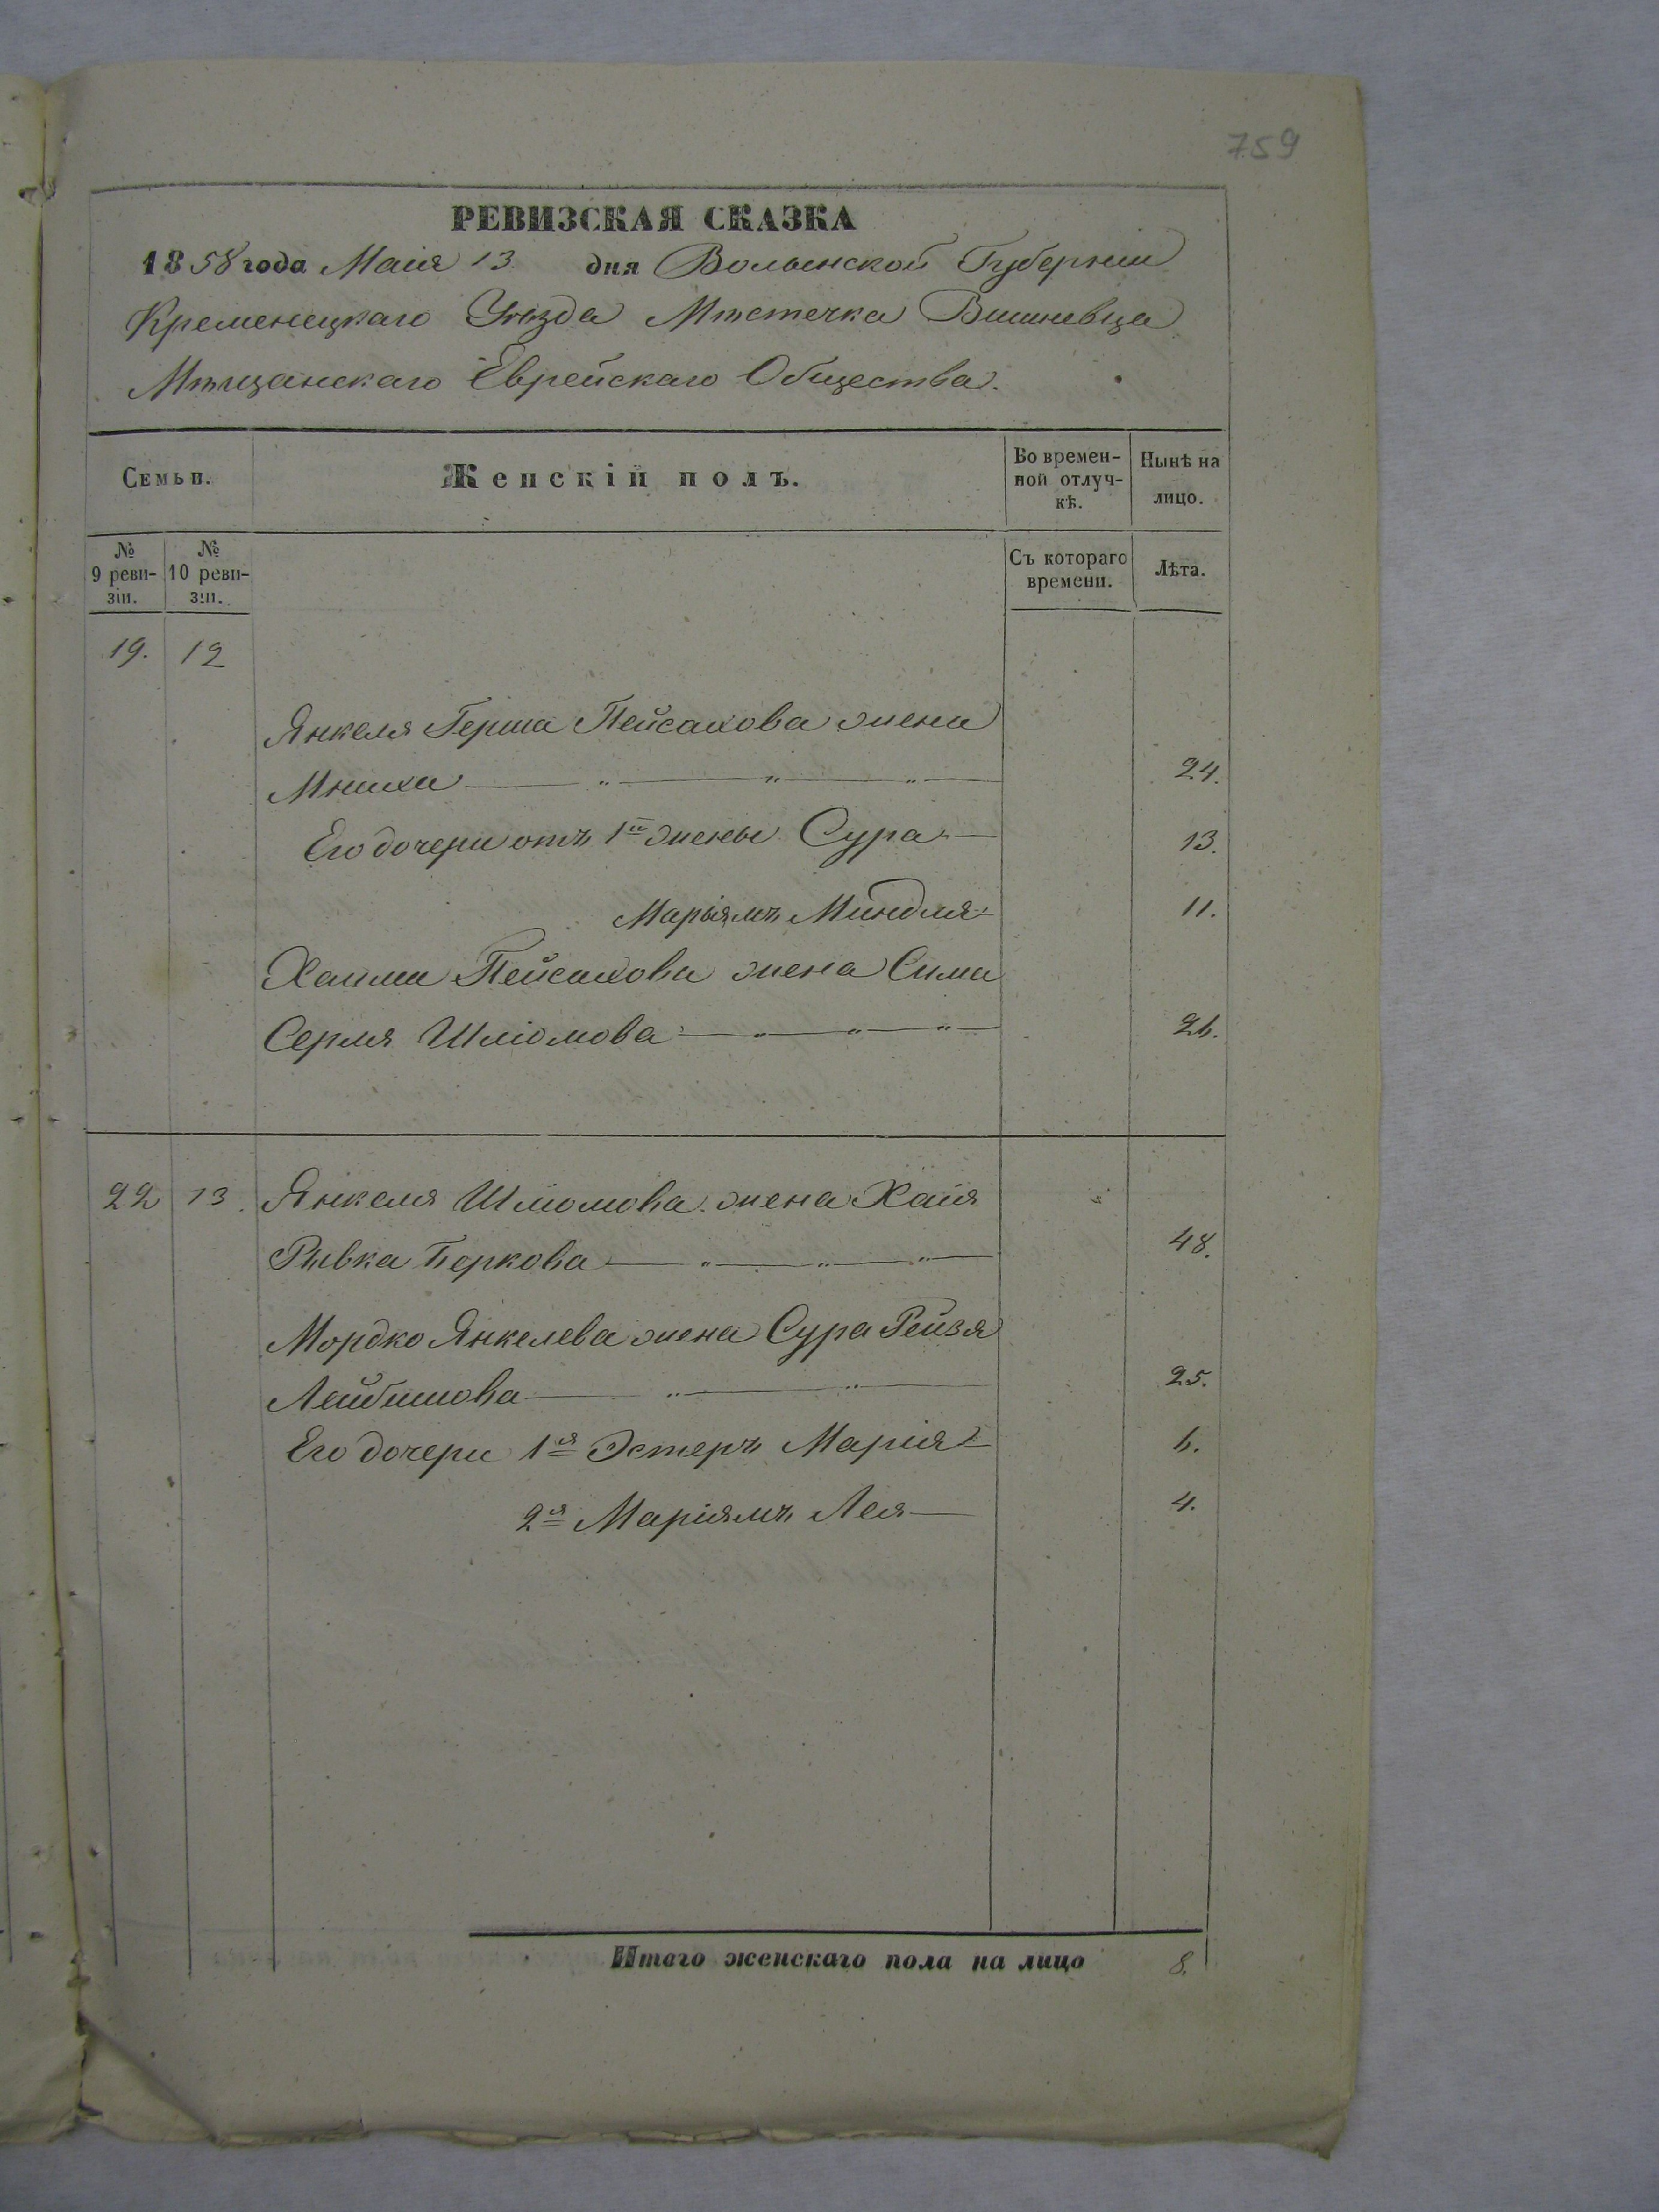 759
РЕВИЗСКАЯ СКАЗКА
1858 года Маія 13 дня Волынской Губерніи
Кременецкаго Уѣзда Мѣстечка Вишневца
Мѣщанскаго Еврейскаго Общества.
Семьи.
Женскій полъ.
Во времен-
ной отлуч-
кѣ.
Нынѣ на
лицо.
№
9 реви-
зіи.
№
10 реви-
зіи.
Съ котораго
времени.
Лѣта.
19. 12
Янкеля Герша Пейсахова жена
24.
Его дочери отъ 1й жены Сура 13.
Маріямъ Миндля 11.
Хаима Пейсахова жена Сима
Серля Шліомова 26.
22 13. Янкеля Шліомова жена Хая
Рывка Беркова 48.
Мордко Янкелева жена Сура Рейзя
Лейбишова 25.
Его дочери 1я Эстеръ Марія 6.
2я Маріямъ Лея 4.
Итого женскаго пола на лицо 8.